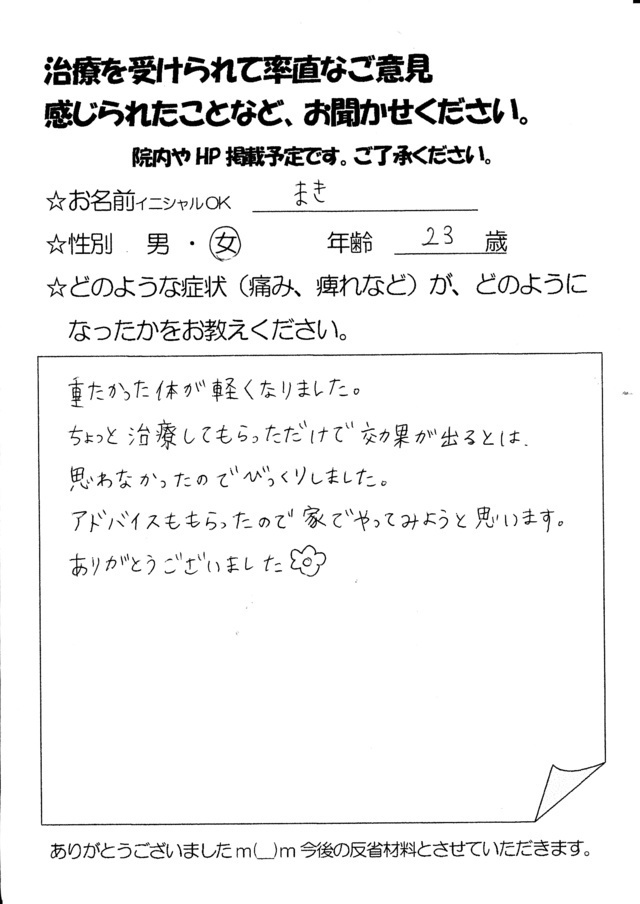 治療を受けられて率直なご意見
感じられたことなど、お聞かせください。
院内やHP掲載予定です。ご了承ください。
☆お名前イニシャルOK まき
☆性別 男・女 年齢 23 歳
☆どのような症状(痛み、痺れなど)が、どのように
なったかをお教えください。
重たかった体が軽くなりました。
ちょっと治療してもらっただけで効果が出るとは、
思わなかったのでびっくりしました。
アドバイスももらったので家でやってみようと思います。
ありがとうございました
ありがとうございましたm(__)m今後の反省材料とさせていただきます。